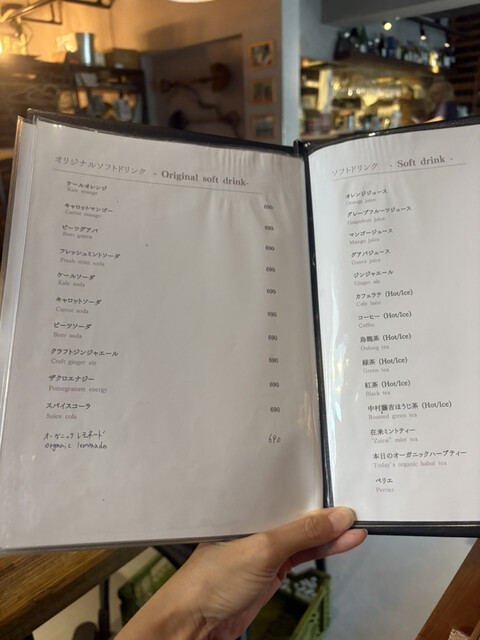 オリジナルソフトドリンク - Original soft drink-
ケールオレンジ 690
Kale orange
キャロットマンゴー 690
Carrot mango
ビーツグアバ 690
Beet guava
フレッシュミントソーダ 690
Fresh mint soda
ケールソーダ 690
Kale soda
キャロットソーダ 690
Carrot soda
ビーツソーダ 690
Beet soda
クラフトジンジャエール 690
Craft ginger air
ザクロエナジー 690
Pomegranate energy
スパイスコーラ 690
Suice cola
オーガニックレモネード 690
organic lemonado
ソフトドリンク - Soft drink -
オレンジジュース
Orange juice
グレープフルーツジュース
Grapefruit juice
マンゴージュース
Mango juice
グアバジュース
Guava juice
ジンジャエール
Ginger ale
カフェラテ (Hot/Ice)
Cafe latte
コーヒー (Hot/Ice)
Coffee
烏龍茶 (Hot/Ice)
Oolong tea
緑茶 (Hot/Ice)
Green tea
紅茶 (Hot/Ice)
Black tea
中村藤吉ほうじ茶 (Hot/Ice)
Roasted green tea
在来ミントティー
"Zairai" mint tea
本日のオーガニックハーブティー
Today's organic habal tea
ペリエ
Perrier